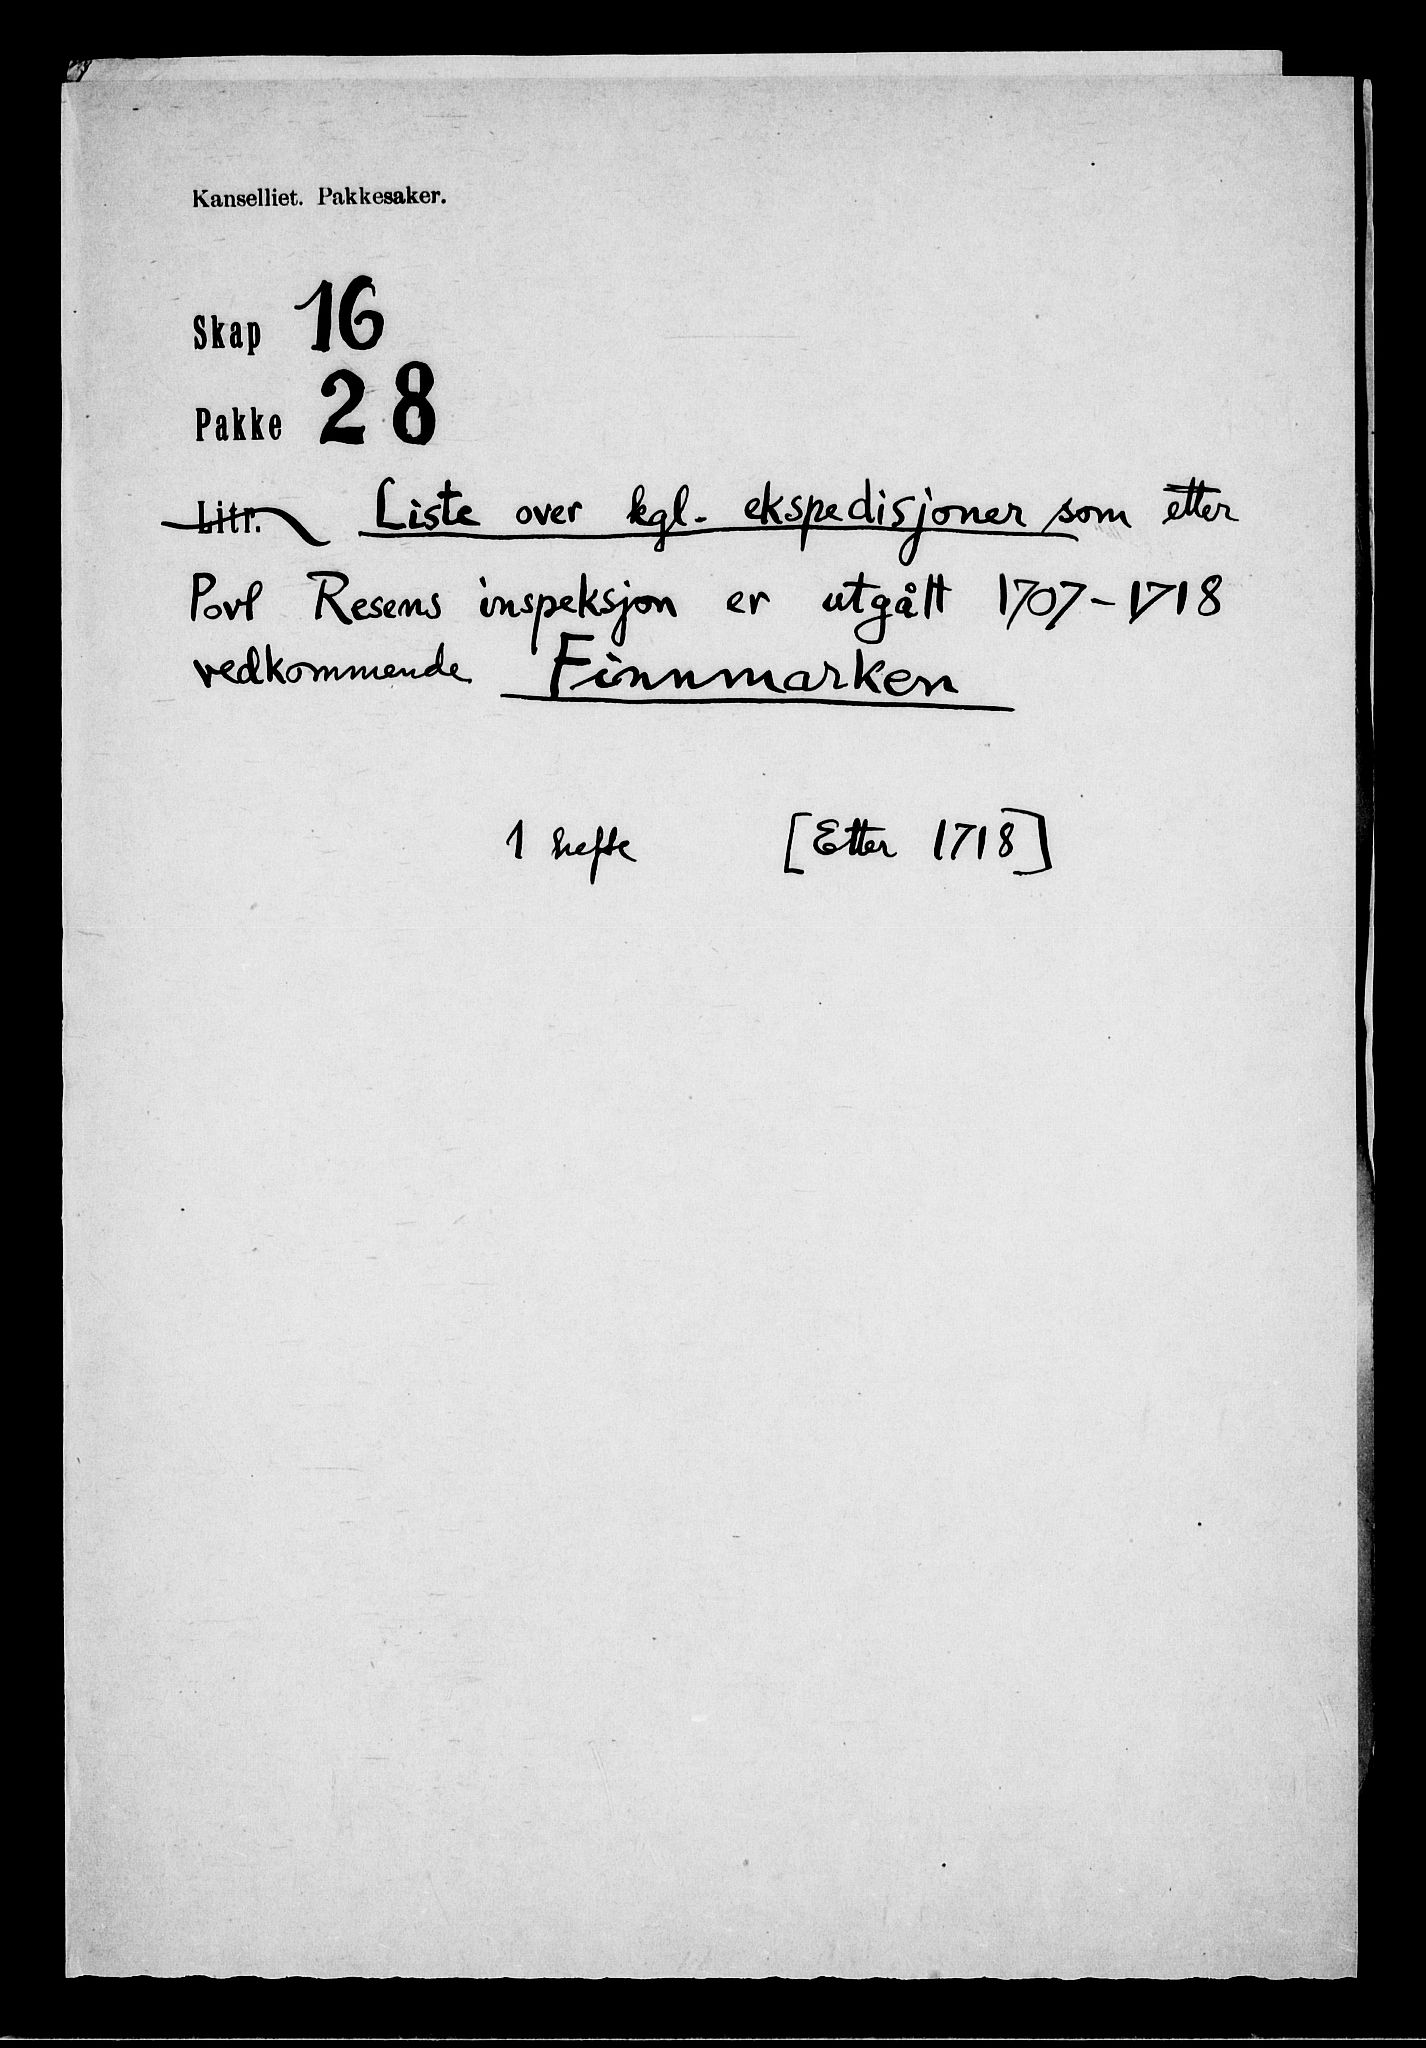 Kanselliet. Pakkesaker.
Skap 16
Pakke 28
Litr. Liste over kgl. ekspedisjoner som etter
Povl Resens inspeksjon er utgått 1707-1718
vedkommende Finnmarken
1 hefte [Etter 1718]